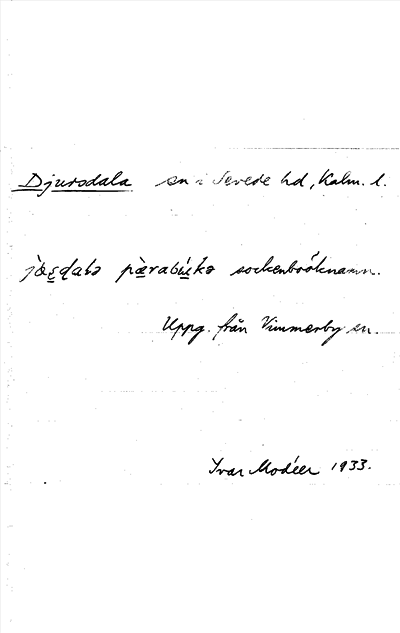 Djursdala sn i Sevede hd, Kalm. l.
sockenboöknamn.
Uppg. från Vimmerby sn.
Ivar Modéer 1933.